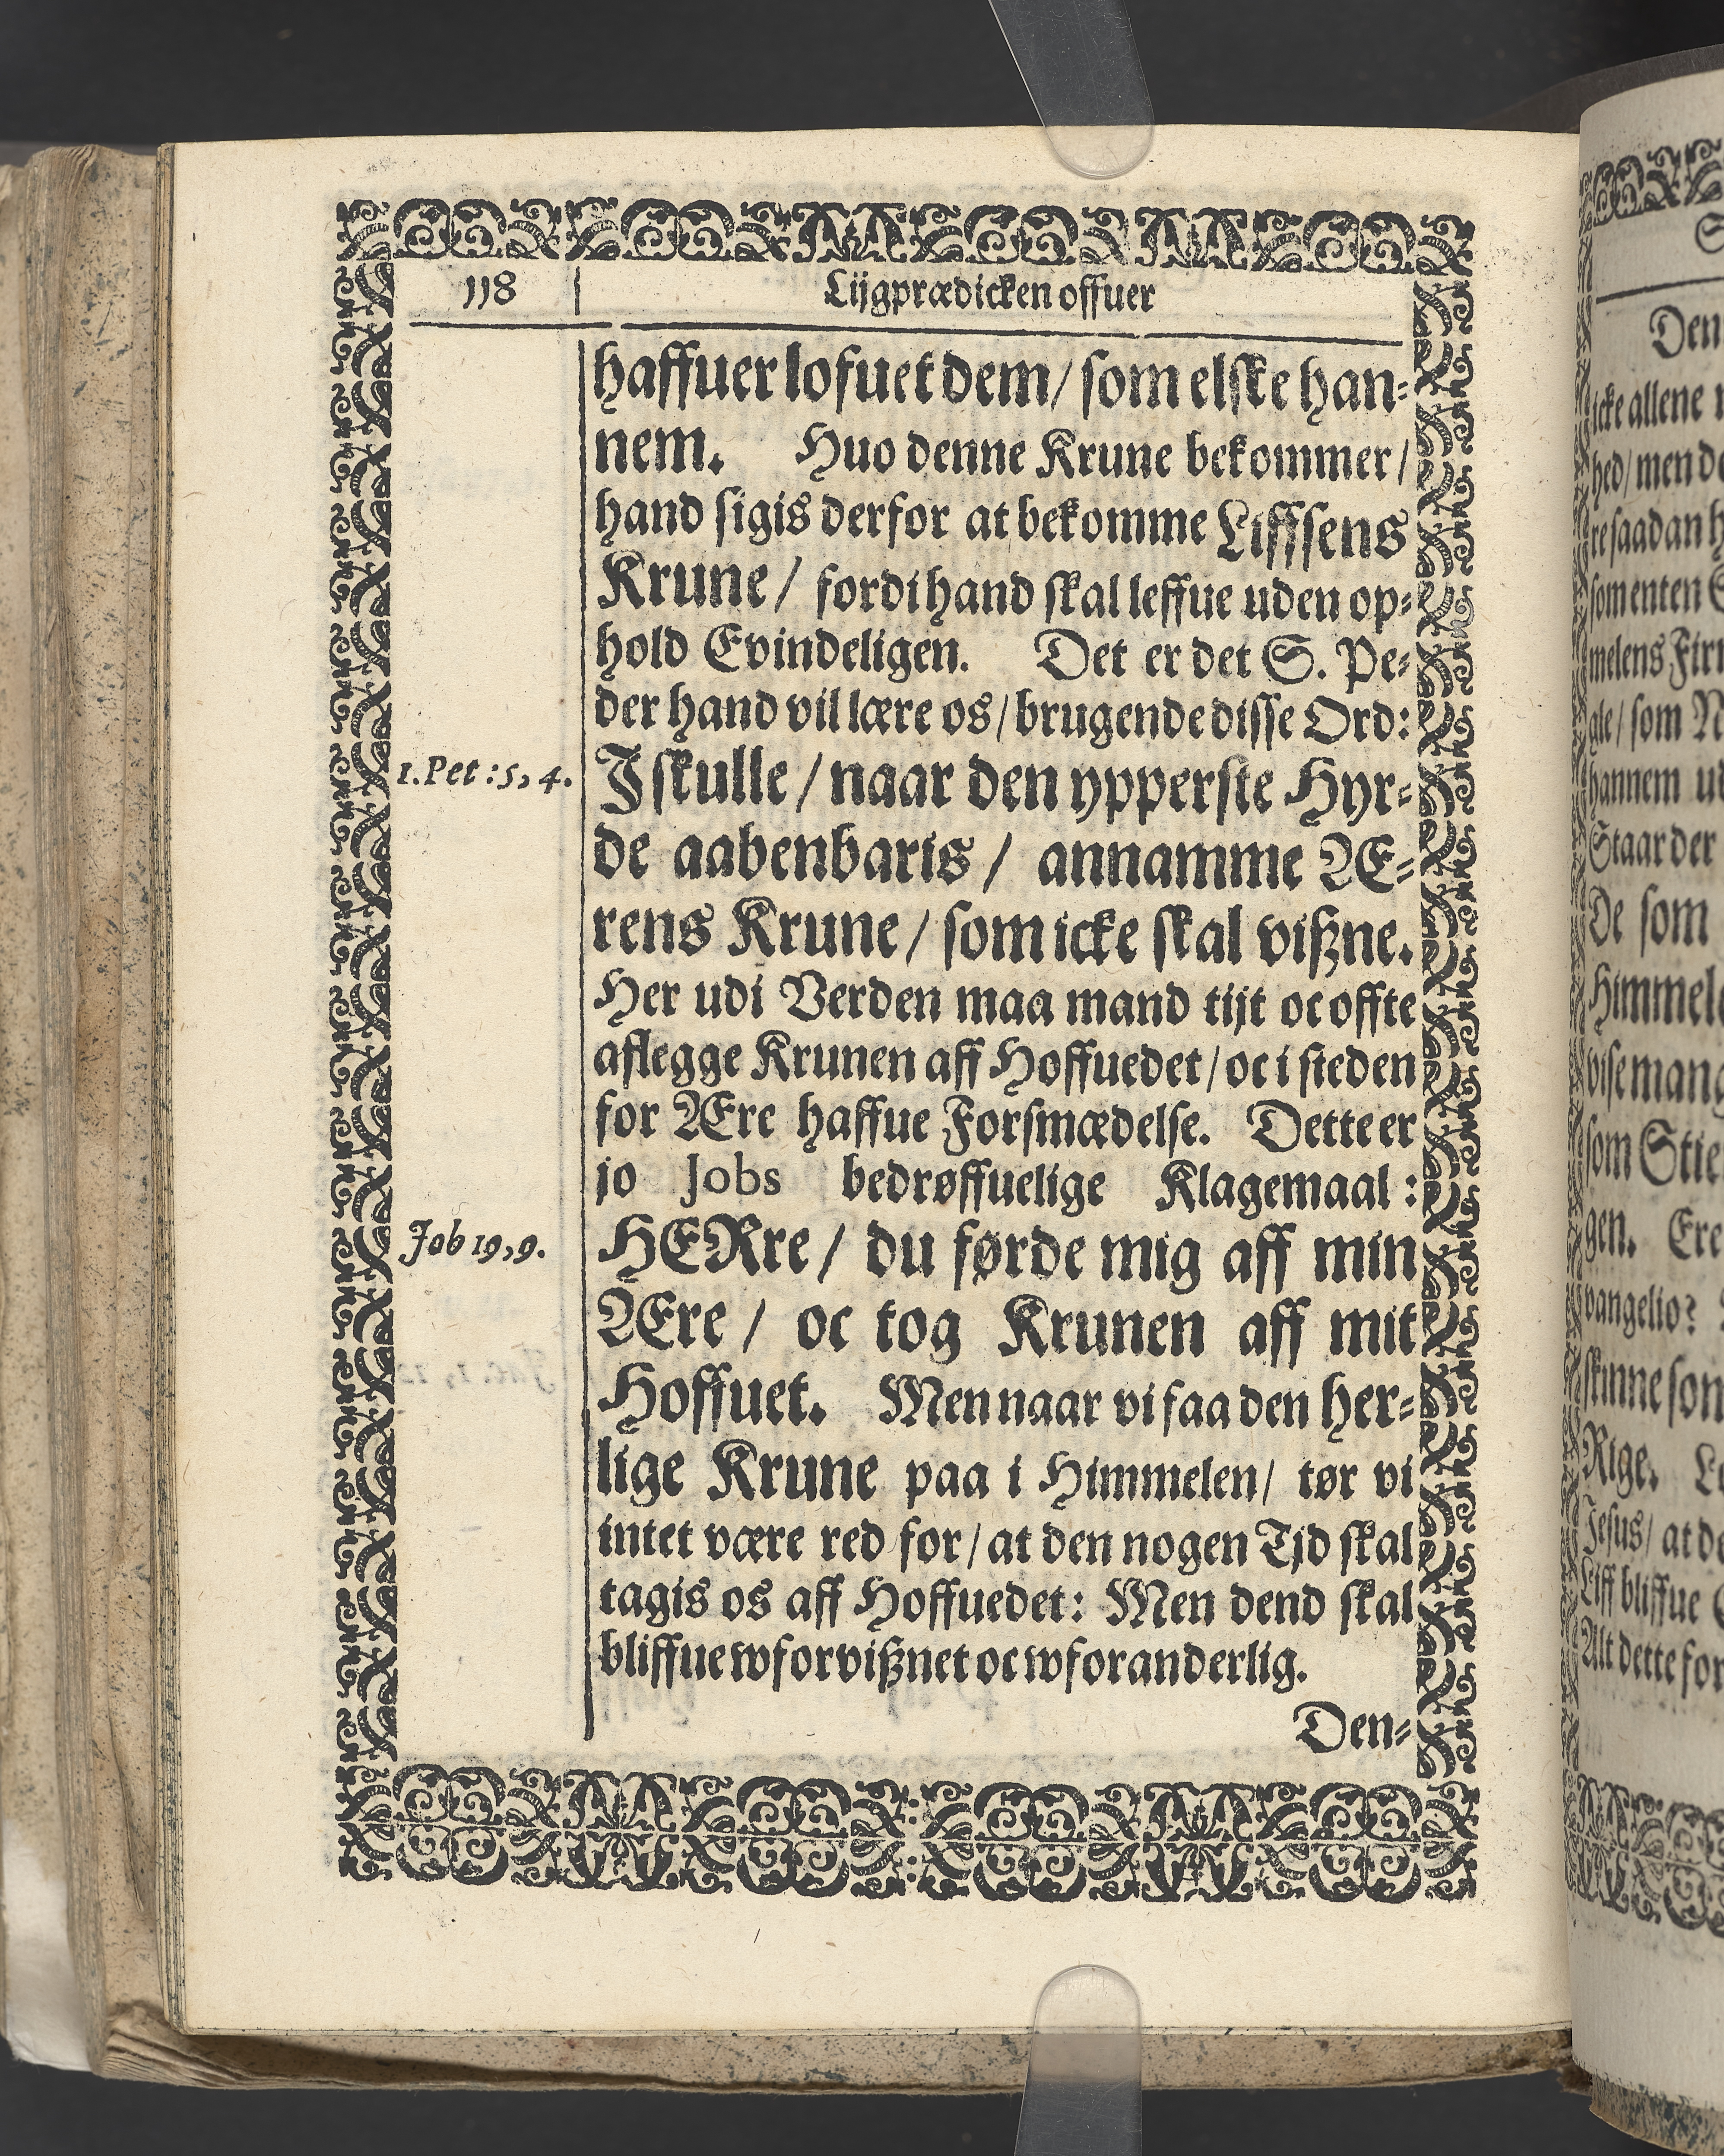 118
Lijgprædicken offuer
haffuer lofuet dem/ som elske han-
nem. Huo denne Krune bekommer/
hand sigis derfor at bekomme Liffsens
Krune/ fordi hand skal leffue uden op-
hold Evindeligen. Det er det S. Pe-
der hand vil lære os/ brugende disse Ord:
1. Pet: 5, 4.
I skulle/ naar den ypperste Hyr-
de aabenbaris/ annamme Æ-
rens Krune/ som icke skal vißne.
Her udi Verden maa mand tijt oc offte
aflegge Krunen aff Hoffuedet/ oc i steden
for Ære haffue Forsmædelse. Dette er
jo Jobs bedrøffuelige Klagemaal:
Job 19, 9.
HERre/ du førde mig aff min
Ære/ oc tog Krunen aff mit
Hoffuet. Men naar vi faa den her-
lige Krune paa i Himmelen/ tør vi
intet være red for/ at den nogen Tjd skal
tagis os aff Hoffuedet: Men dend skal
bliffue wforvißnet oc wforanderlig.
Den-
Den
icke allene
hed/ men
re saadan
som enten
melens
gle/ som
hannem
Staar der
De som
vise
som
gen. Ere
vangelio?
skinne som
Rige.
Jesus/ at
Liff bliffue
Alt dette for